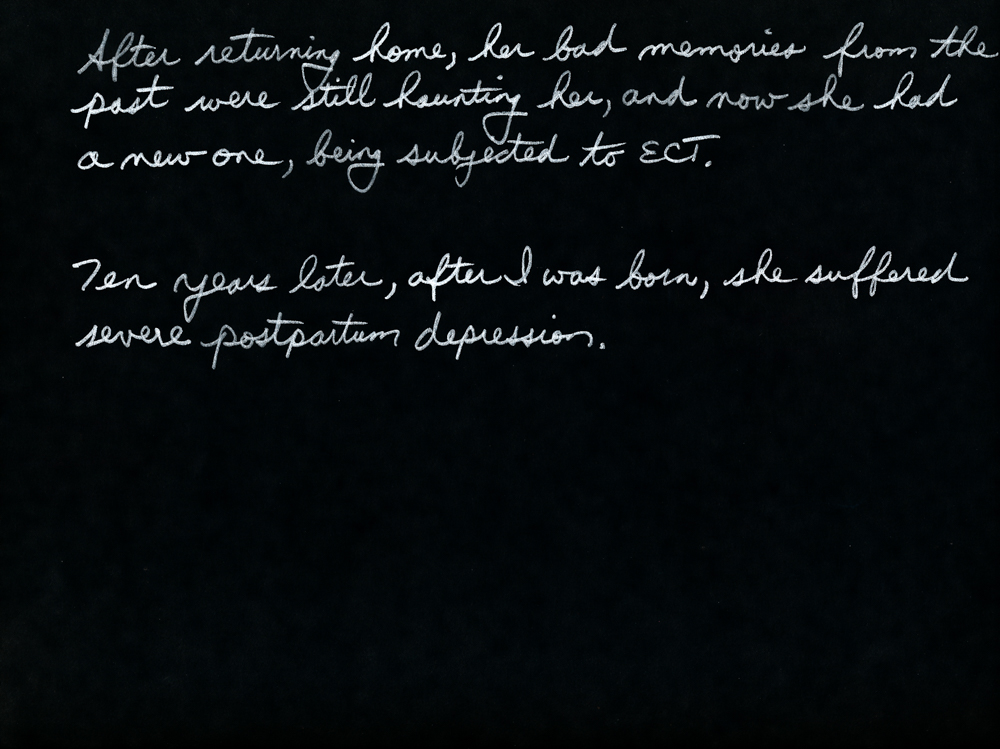 After returning home, her bad memories from the
past were still haunting her, and now she had
a new one, being subjected to ECT.
Ten years later, after I was born, she suffered
severe postpartum depression.